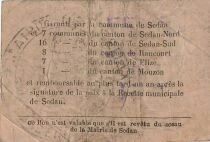 Garanti par la commune de Sedan
7 communes du canton de Sedan-Nord
16 — du canton de Sedan-Sud
8 — du canton de Raucourt
7 — du canton de Flize
1 — du canton de Mouzon
et remboursable au plus tard un an après la
signature de la paix à la Recette municipale
de Sedan.
Ce Bon n'est valable que s'il est revêtu du sceau
de la Mairie de Sedan